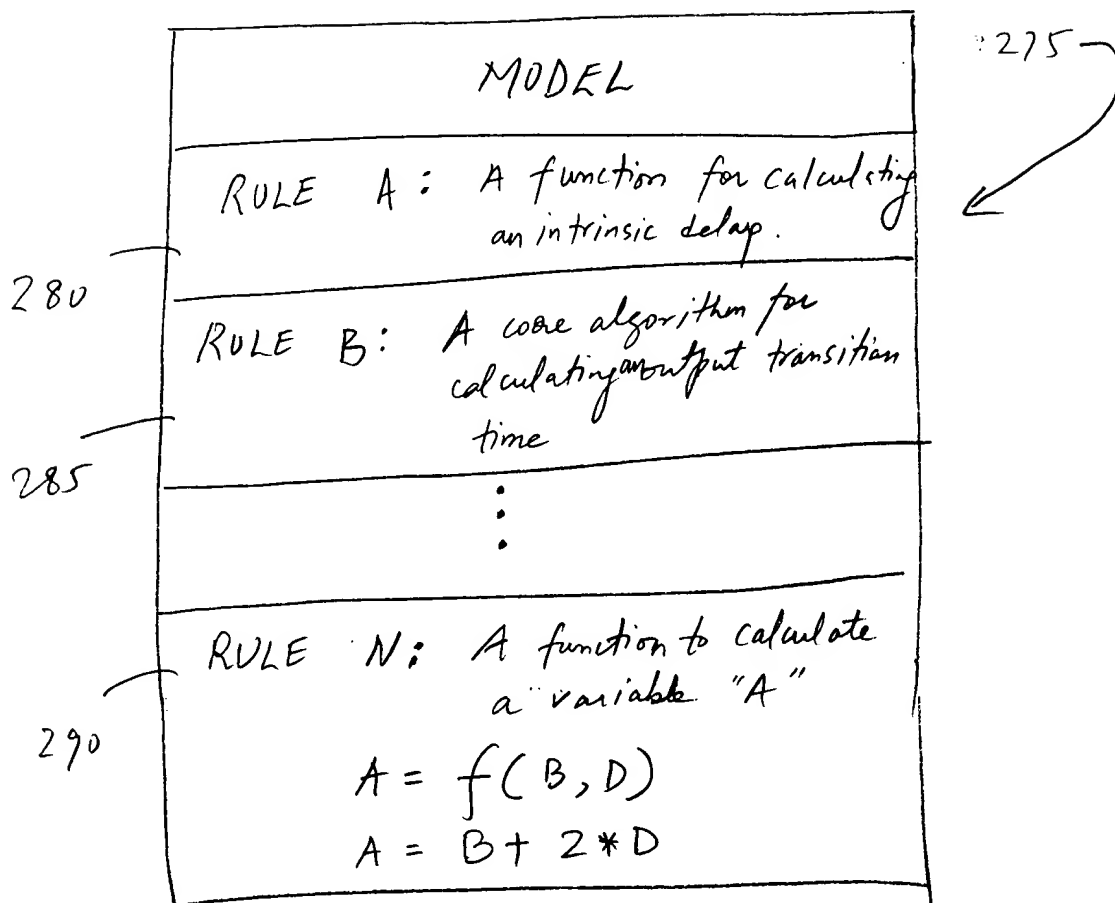 275
MODEL
RULE A: A function for calculating
an intrinsic delay.
280
RULE B: A core algorithm for
calculating an output transition
time
285
RULE N: A function to calculate
a variable "A"
290
A = f(B, D)
A = B + 2 * D